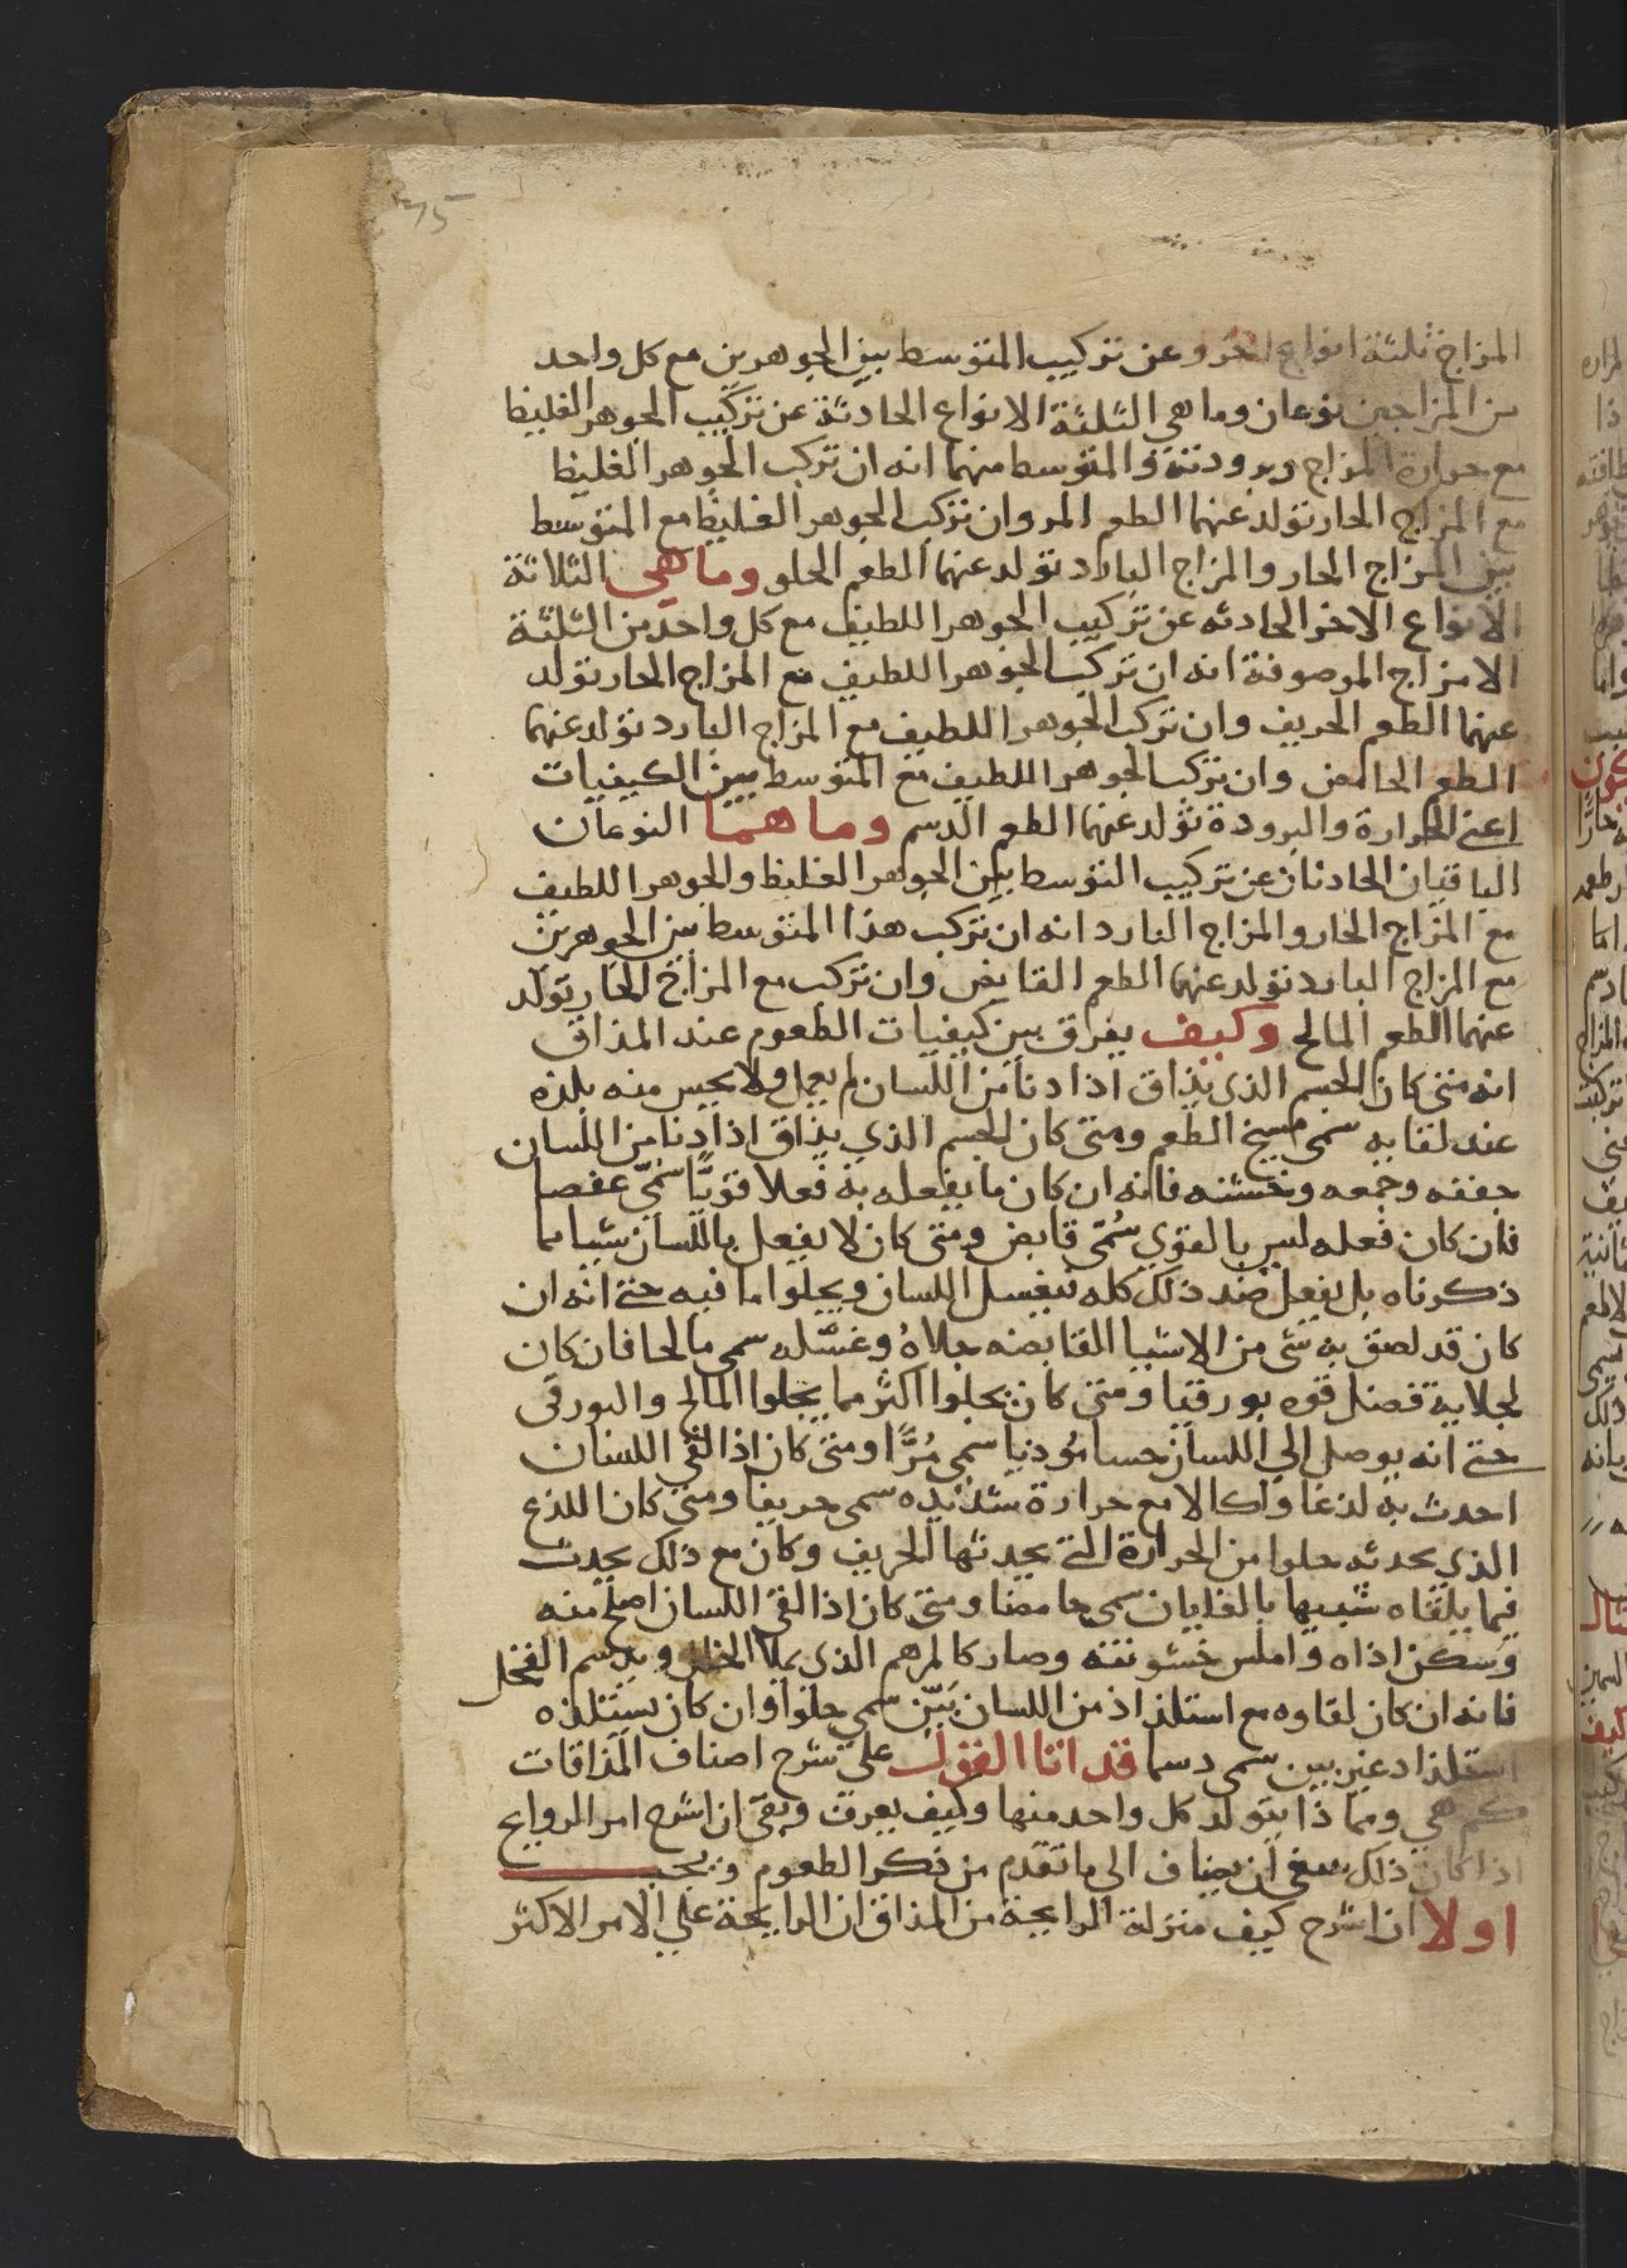 75
المزاج ثلثة انواع اخر وعن تركيب المتوسط بين الجوهرين مع كل واحد
من المزاجين نوعان وما هي الثلثة الانواع الحادثة عن تركيب الجوهر الغليظ
مع حرارة المزاج وبرودته والمتوسط منهما انه ان تركب الجوهر الغليظ
مع المزاج الحار تولد عنهما الطعم المر وان تركب الجوهر الغليظ مع المتوسط
بين المزاج الحار والمزاج البارد تولد عنهما الطعم الحلو وما هي الثلاثة
الانواع الاخر الحادثه عن تركيب الجوهر اللطيف مع كل واحد من الثلثة
الامزاج الموصوفة انه ان تركب الجوهر اللطيف مع المزاج الحار تولد
عنهما الطعم الحريف وان تركب الجوهر اللطيف مع المزاج البارد تولد عنهما
الطعم الحامض وان تركب الجوهر اللطيف مع المتوسط بين الكيفيات
اعني الحرارة والبرودة تولد عنهما الطعم الدسم وما هما النوعان
الباقيان الحادثان عن تركيب التوسط بين الجوهر الغليظ والجوهر اللطيف
مع المزاج الحار والمزاج البارد انه ان تركب هذا المتوسط بين الجوهرين
مع المزاج البارد تولد عنهما الطعم القابض وان تركب مع المزاج الحار تولد
عنهما الطعم المالح وكيف يفرق بين كيفيات الطعوم عند المذاق
انه متى كان الجسم الذي يذاق اذا دنا من اللسان لم يعمل ولا يحس منه بلذه
عند لقايه سمى مسيخ الطعم ومتى كان الجسم الذي يذاق اذا دنا من اللسان
جففه وجمعه وخشنه فانه ان كان ما يفعله به فعلا قويًّا سُمّي عفصا
فان كان فعله ليس بالقوي سُمّى قابض ومتى كان لا يفعل باللسان شيا مما
ذكرناه بل يفعل ضد ذلك كله فيغسل اللسان ويجلوا ما فيه حتى انه ان
كان قد لصق به شى من الاشيا القابضه جلاهُ وغسّله سمى مالحا فان كان
لجلايه فضل قوه بورقيا ومتى كان يجلوا اكثر مما يجلوا المالح والبورقى
حتى انه يوصل الي اللسان حسا مُوذيا سمى مُرًّا ومتى كان اذا لقى اللسان
احدث به لذعا واكالا مع حرارة شديده سمى حريفا ومتى كان اللذع
الذي يحدثه خلوا من الحرارة التي يحدثها الحريف وكان مع ذلك يحدث
فيما يلقاه شبيها بالغليان سمى حامضا ومتى كان اذا لقى اللسان اصلح منه
وسكن اذاه واملس خشونته وصار كالمرهم الذى يملا الخلل
فانه ان كان لقاوه مع استلذاذ من اللسان بَيّن سمي حلوا وان كان يستلذه
استلذاذ غير بين سمى دسما قد اتا القول على شرح اصناف المذاقات
كم هي ومما ذا يتولد كل واحد منها وكيف يعرف وبقى ان اشرح امر الروايح
اذا كان ذلك ينبغى ان يضاف الى ما تقدم من ذكر الطعوم ويجب
اولا ان اشرح كيف منزلة الرايحة من المذاق ان الرايحة علي الامر الاكثر